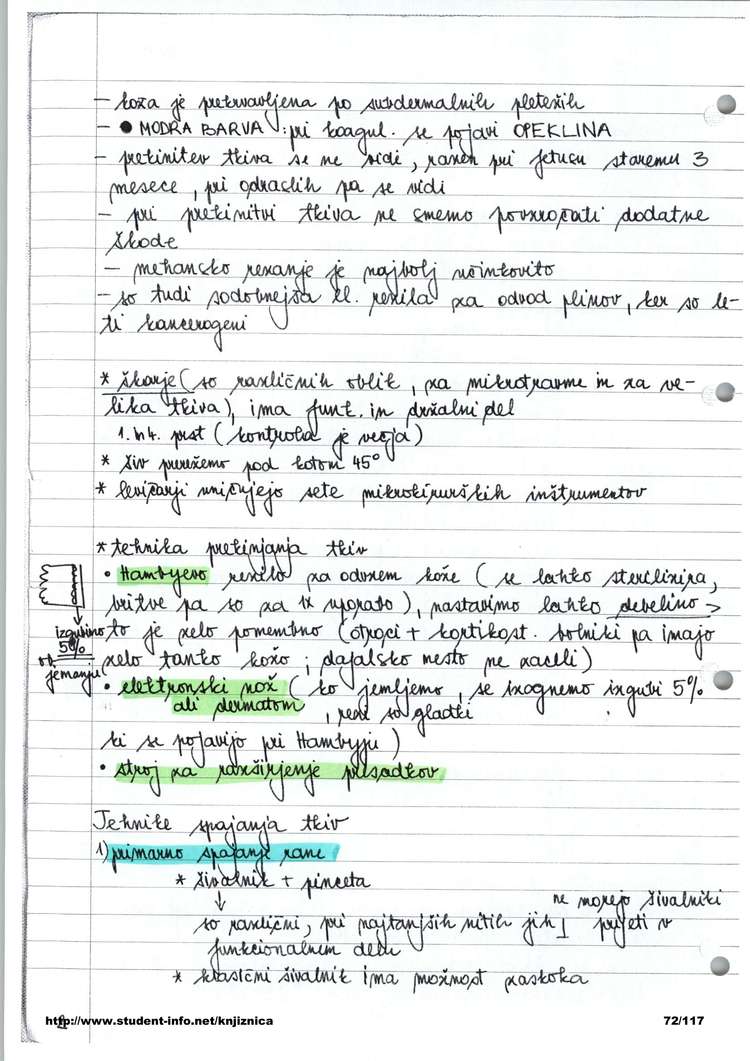 – koža je prekrvavljena po subdermalnih pletežih
– ● MODRA BARVA : pri koagul. se pojavi OPEKLINA
– prekinitev tkiva se ne vidi, razen pri fetusu staremu 3
mesece, pri odraslih pa se vidi
– pri prekinitvi tkiva ne smemo povzročati dodatne
škode
– mehansko rezanje je najbolj učinkovito
– so tudi sodobnejša el. rezila za odvod plinov, ker so le-
ti kancerogeni
* škarje (so različnih oblik, za mikrotravme in za ve-
lika tkiva), ima funt. in držalni del
1. in 4. prst (kontrola je večja)
* šiv prerežemo pod kotom 45°
* levičarji uničujejo sete mikrokirurških inštrumentov
* tehnika prekinjanja tkiv
• Hambyevo rezilo za odvzem kože (se lahko sterilizira,
britve pa so za 1x uporabo), nastavimo lahko debelino →
izgubimo
5%
ob
jemanju
to je zelo pomembno (otroci + kortikost. bolniki pa imajo
zelo tanko kožo ; dajalsko mesto ne zaceli)
• elektronski nož (ko jemljemo, se izognemo izgubi 5%
ali dermatom , rezi so gladki
ki se pojavijo pri Hambyju)
• stroj za razširjenje presadkov
Tehnike spajanja tkiv
1) primarno spajanje rane
* šivalnik + pinceta
↓
so različni, pri najtanjših nitih jih ne morejo šivalniki prijeti v
funkcionalnem delu
* klasični šivalnik ima možnost zaskoka
http://www.student-info.net/knjiznica
72/117